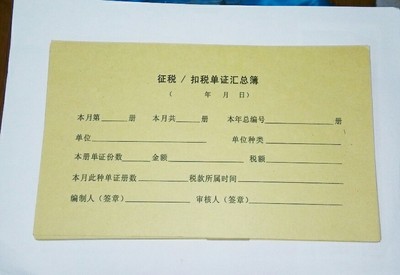 征税 / 扣税单证汇总簿
（ 年 月 日）
本月第______册 本月共______册 本年总编号______册
单位______ 单位种类______
本册单证份数______金额______税额______
本月此种单证册数______税款所属时间______
编制人（签章）______审核人（签章）______